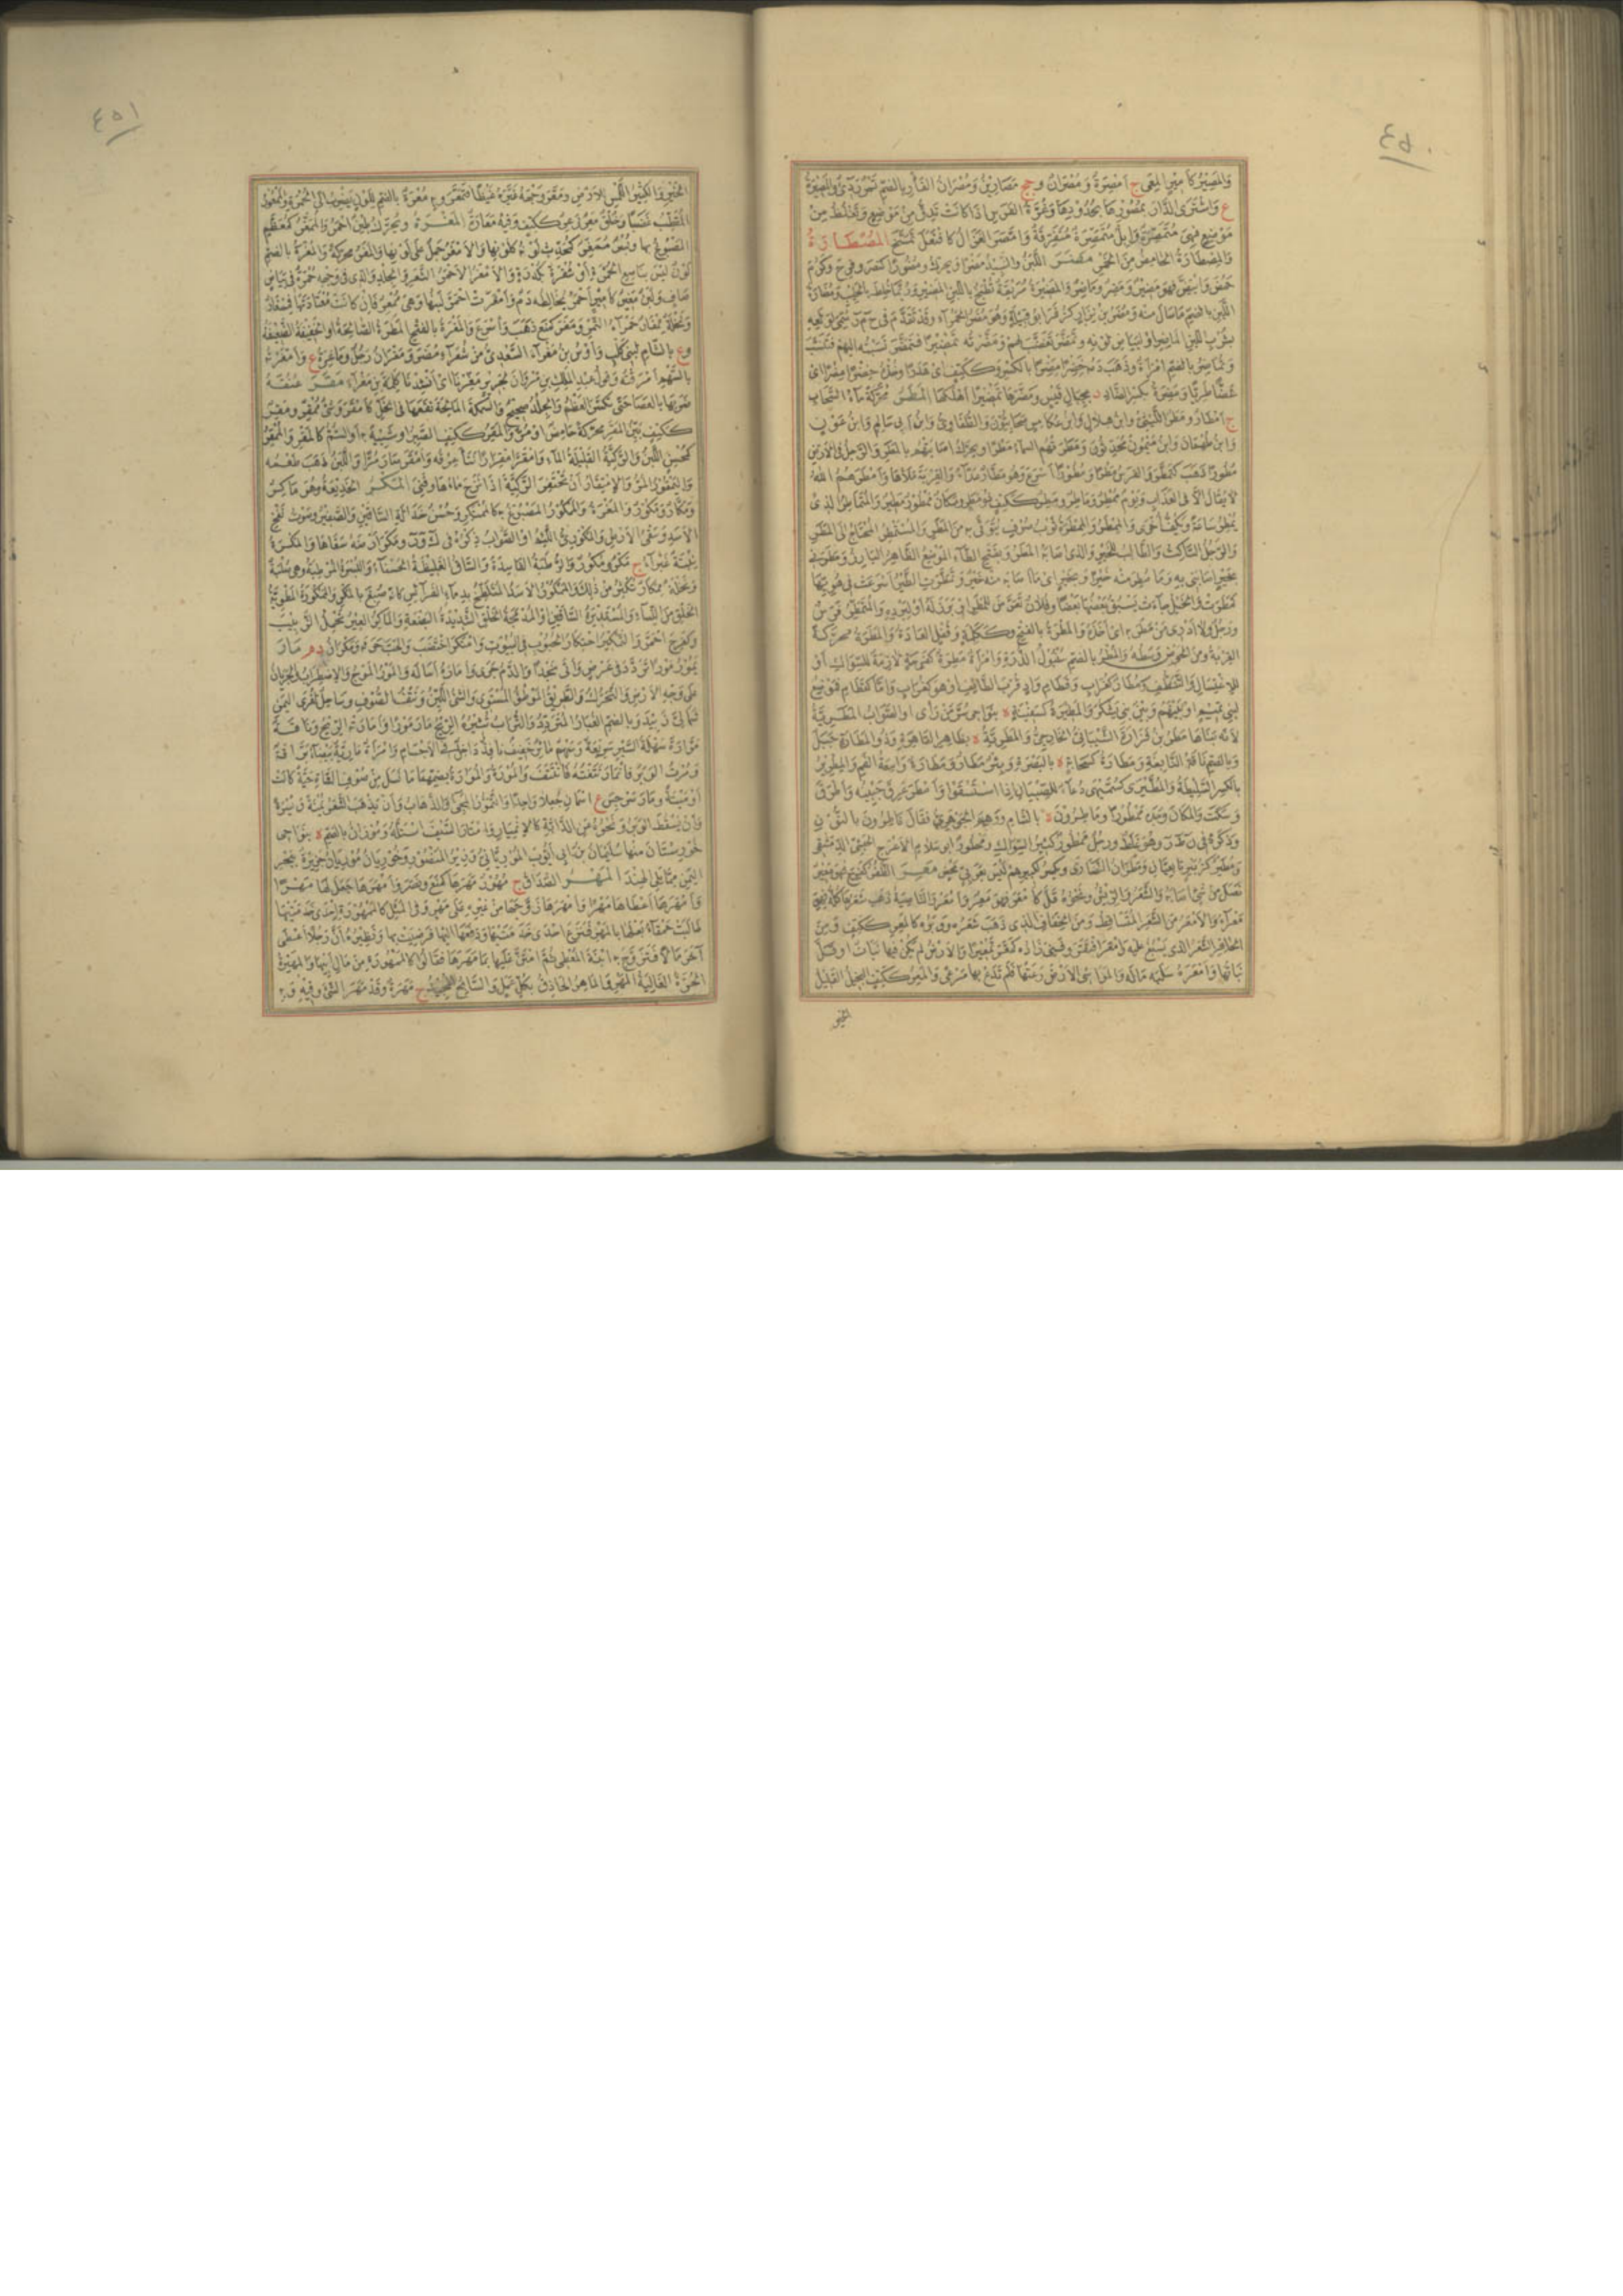 ٤٥٠
وَالمَصِيْرُ كَأَمِيْرٍ المِعَى ج أَمْصِرَةٌ وَمُصْرَانٌ وجج مَصَارِيْنُ وَمُصْرَانُ الفَأْرِ بالضمّ تَمْرٌ رَدِىٌّ وَالمَصِيْرَةُ
ع وَاشْتَرَى الدَّارَ بِمُصُورِهَا بِحُدُوْدِهَا وَغُرَّةُ الفَرَسِ اذَا كَانَتْ تَدِقُّ مِنْ مَوْضِعٍ وَتَغْلُظُ مِنْ
مَوْضِعٍ فَهِىَ مُتَمَصِّرَةٌ وَإِبِلٌ مُتَمَصِّرَةٌ مُتَفَرِّقَةٌ وَامَّصَرَ الغَزْلُ كَافْتَعَلَ تَمَسَّخَ المُصْطَارَةُ
وَالمُصْطَارُ الحَامِضُ مِنَ الخَمْرِ مَضَرَ اللَّبَنُ والنَّبِيْذُ مَضْرًا وَيُحَرَّكُ وَمُضُوْرًا كَنَصَرَ وفَرِحَ وَكَرُمَ
حَمُضَ وَابْيَضَّ فهوَ مَضِيْرٌ وَمَضِرٌ وَمَاضِرٌ وَالمَضِيْرَةُ مُرَيْقَةٌ تُطْبَخُ بِاللَّبَنِ المَضِيْرِ وَرُبَّمَا خُلِطَ بِالحَلِيْبِ وَمُضَارَةُ
اللَّبَنِ بالضمّ مَاسَالَ مِنْهُ وَمُضَرُ بْنُ نِزَارٍ كَزُفَرَ ابُو قَبِيْلَةٍ وَهُوَ مُضَرُ الحَمْرَاءِ وَقَدْ تَقَدَّمَ فى ح م ر سُمِّىَ لِوَلَعِهِ
بِشُرْبِ اللَّبَنِ المَاضِرِ او لِبَيَاضِ لَوْنِهِ وَتَمَضَّرَ تَغَضَّبَ لَهُمْ وَمَضَّرْتُهُ تَمْضِيْرًا فَتَمَضَّرَ نَسَبْتُهُ اليهِمْ فَتَنَسَّبَ
وَتُمَاضِرُ بالضمّ امْرَأَةٌ وَذَهَبَ دَمُهُ خِضْرًا مِضْرًا بالكَسْرِ وَكَكَتِفٍ اىْ هَدَرًا وَخُذْهُ خِضْرًا مِضْرًا اىْ
غَضًّا طَرِيًّا وَمَضِرَةُ بكَسْرِ الضَّادِ د بِجِبَالِ قَيْسٍ وَمَضَّرَهَا تَمْضِيْرًا أَهْلَكَهَا المَطَرُ مُحَرَّكَةً مَاءُ السَّحَابِ
ج أَمْطَارٌ وَمَطَرٌ اللَّيْثِىُّ وابْنُ هِلَالٍ وَابْنُ عُكَامِسٍ صَحَابِيُّوْنَ وَالطُّفَاوِىُّ وَابْنُ أَبى سَالِمٍ وَابْنُ عَوْفٍ
وَابْنُ طَهْمَانَ وَابْنُ مَيْمُوْنٍ مُحَدِّثُوْنَ وَمَطَرَتْهُم السماءُ مَطْرًا وَيُحَرَّكُ اصَابَتْهُم بالمَطَرِ وَالرَّجُلُ فى الأَرْضِ
مُطُوْرًا ذَهَبَ كَتَمَطَّرَ وَالفَرَسُ مَطْرًا وَمُطُوْرًا أَسْرَعَ وَهُوَ مَطَّارٌ عَدَّاءٌ وَالقِرْبَةَ مَلَأَهَا وَأَمْطَرَهُمُ اللهُ
لَا يُقَالُ الَّا فى العَذَابِ وَيَوْمٌ مُمْطِرٌ وَمَاطِرٌ وَمَطِرٌ كَكَتِفٍ ذُوْ مَطَرٍ وَمَكَانٌ مَمْطُوْرٌ وَمَطِيْرٌ وَالمُتَمَاطِرُ الذى
يَمْطُرُ سَاعَةً وَيَكُفُّ أُخْرَى وَالمِمْطَرُ وَالمِمْطَرَةُ ثَوْبُ صُوْفٍ يُتَوَقَّى بِهِ مِنَ المَطَرِ وَالمُسْتَمْطِرُ المُحْتَاجُ الى المَطَرِ
وَالرَّجُلُ السَّاكِتُ وَالطَّالِبُ لِلخَيْرِ وَالذى اصَابَهُ المَطَرُ وَبِفَتْحِ الطَّاءِ المَوْضِعُ الظَّاهِرُ البَارِزُ وَمَطَرَنِى
بِخَيْرٍ اصَابَنِى بِهِ وَمَا مُطِرَ مِنْهُ خَيْرًا وَبِخَيْرٍ اىْ مَا اصَابَهُ مِنْهُ خَيْرٌ وَتَمَطَّرَتِ الطَّيْرُ اسْرَعَتْ فى هُوِيِّهَا
كَمَطَرَتْ وَالخَيْلُ جَاءَتْ يَسْبِقُ بَعْضُهَا بَعْضًا وَفُلَانٌ تَعَرَّضَ لِلمَطَرِ او بَرَزَ لَهُ أَوْ لِبَرْدِهِ وَالمُتَمَطِّرُ فَرَسٌ
وَرَجُلٌ وَلَا أَدْرِى مَنْ مَطَرَ بِهِ اىْ أَخَذَهُ وَالمَطْرَةُ بالفتحِ وَكَكَلِمَةٍ وَقُفْلٍ العَادَةُ وَالمَطَرَةُ مُحَرَّكَةً
القِرْبَةُ وَمِنَ الحَوْضِ وَسَطُهُ وَالمُطْرُ بالضمّ سُنْبُوْلُ الذُّرَةِ وَامْرَأَةٌ مَطِرَةٌ كَفَرِحَةٍ لَازِمَةٌ لِلسِّوَاكِ أَوْ
لِلِاغْتِسَالِ وَالتَّنَظُّفِ وَمُطَارٌ كَغُرَابٍ وَقَطَامِ وَادٍ قُرْبَ الطَّائِفِ اوْ هو كَغُرَابٍ وَامَّا كَقَطَامِ فَمَوْضِعٌ
لِبَنِى تَمِيْمٍ او بَيْنَهُم وَبَيْنَ بَنِى يَشْكُرَ وَالمَطِيْرَةُ كَسَفِيْنَةٍ ة بِنَوَاحِى سُرَّ مَنْ رَأَى اوِ الصَّوَابُ المَطَرِيَّةُ
لِأَنَّهُ بَنَاهَا مَطَرُ بْنُ فَزَارَةَ الشَّيْبَانِىُّ الخَارِجِىُّ وَالمَطَرِيَّةُ ة بِظَاهِرِ القَاهِرَةِ وَذُو المَطَارَةِ جَبَلٌ
وَبِالضمّ نَاقَةُ النَّابِغَةِ وَمَطَارَةُ كَسَحَابَةٍ ة بالبَصْرَةِ وَبِئْرٌ مَطَارٌ وَمَطَارَةٌ وَاسِعَةُ الفَمِ وَالمِطْرِيْرُ
بِالكَسْرِ السَّلِيْطَةُ وَالمُطَّيْرَى كَسُمَّيْهَى دُعَاءٌ لِلصِّبْيَانِ اذا اسْتَسْقَوْا وَأَمْطَرَ عَرِقَ جَبِيْنُهُ وَأَطْرَقَ
وَسَكَتَ وَالمَكَانَ وَجَدَهُ مَمْطُوْرًا وَمَاطِرُوْنَ ة بالشَّامِ وَوَهِمَ الجَوْهَرِىُّ فَقَالَ نَاطِرُوْنَ بِالنُّوْنِ
وَذَكَرَهُ فى ن ط ر وهُوَ غَلَطٌ وَرَجُلٌ مَمْطُوْرٌ كَثِيْرُ السِّوَاكِ وَمَمْطُوْرٌ ابو سَلَّامٍ الأَعْرَجُ الحَبَشِىُّ الدِّمَشْقِىُّ
وَمُطَيْرٌ كَزُبَيْرٍ تَابِعِيَّانِ وَمَطْرَانُ النَّصَارَى وَيُكْسَرُ لِكَبِيْرِهِمْ لَيْسَ بِعَرَبِىٍّ مَحْضٍ مَعِرَ الظُّفُرُ كَفَرِحَ فهوَ مَعِرٌ
نَصَلَ مِنْ شَىْءٍ اصَابَهُ وَالشَّعَرُ وَالرِّيْشُ وَنَحْوُهُ قَلَّ كَأَمْعَرَ فهوَ مَعِرٌ وأَمْعَرُ وَالنَّاصِيَةُ ذَهَبَ شَعَرُهَا كُلُّهُ فهى
مَعْرَاءُ وَالأَمْعَرُ مِنَ الشَّعَرِ المُتَسَاقِطُ وَمِنَ الخِفَافِ الذى ذَهَبَ شَعَرُهُ وَوَبَرُهُ كَالمَعِرِ كَكَتِفٍ وَمِنَ
الحَافِرِ الشَّعَرُ الذى يَسْبُغُ عَلَيهِ وَأَمْعَرَ افْتَقَرَ وَفَنِىَ زَادُهُ كَمَعَّرَ تَمْعِيْرًا وَالأَرْضُ لَمْ يَكُنْ فِيهَا نَبَاتٌ او قَلَّ
نَبَاتُهَا وَأَمْعَرَهُ سَلَبَهُ مَالَهُ وَالمَوَاشِى الأَرْضَ رَعَتْهَا فَلَمْ تَدَعْ بِهَا مَرْعًى وَالمَعِرُ كَكَتِفٍ البَخِيْلُ القَلِيْلُ
الخير
٤٥١
الخَيْرِ وَالكَثِيْرُ اللَّمْسِ لِلأَرْضِ وَمَعَّرَ وَجْهَهُ غَيَّرَهُ غَيْظًا فَتَمَعَّرَ وبِهِ مُعْرَةٌ بالضمّ لِلَوْنٍ يَضْرِبُ الى الحُمْرَةِ وَالمَمْعُوْرُ
المُقَطِّبُ غَضَبًا وَخُلُقٌ مَعِرٌ زَعِرٌ كَكَتِفٍ وَفِيْهِ مَعَارَةٌ المَغْرَةُ وَيُحَرَّكُ طِيْنٌ احْمَرُ وَالمُمَغَّرُ كَمُعَظَّمٍ
المَصْبُوْغُ بها وَبُسْرٌ مُمَغِّرٌ كَمُحَدِّثٍ لَوْنُهُ كَلَوْنِهَا وَالأَمْغَرُ جَمَلٌ عَلَى لَوْنِهَا وَالمَغَرُ مُحَرَّكَةً وَالمُغْرَةُ بالضمّ
لَوْنٌ لَيْسَ بِنَاصِعِ الحُمْرَةِ أَوْ شُقْرَةٌ بِكُدْرَةٍ وَالأَمْغَرُ الأَحْمَرُ الشَّعَرِ وَالجِلْدِ وَالذى فى وَجْهِهِ حُمْرَةٌ فى بَيَاضٍ
صَافٍ وَلَبَنٌ مَغِيْرٌ كَأَمِيْرٍ أَحْمَرُ يُخَالِطُهُ دَمٌ وَأَمْغَرَتْ احْمَرَّ لَبَنُهَا وَهِىَ مُمْغِرٌ فَإِنْ كَانَتْ مُعْتَادَتَهَا فَمِمْغَارٌ
وَنَخْلَةٌ مِمْغَارٌ حَمْرَاءُ التَّمْرِ وَمَغَرَ كَمَنَعَ ذَهَبَ وَأَسْرَعَ وَالمَغْرَةُ بالفتحِ المَطْرَةُ الصَّالِحَةُ او الخَفِيْفَةُ الضَّعِيْفَةُ
وع بالشَّامِ لِبَنِى كَلْبٍ وَأَوْسُ بْنُ مَغْرَاءَ السَّعْدِىُّ مِنْ شُعَرَاءِ مُضَرَ وَمَغْرَانُ رَجُلٌ وَمَاغِرَةُ ع وَأَمْغَرْتُهُ
بالسَّهْمِ أَمْرَقْتُهُ وَقَوْلُ عَبْدِ المَلِكِ بنِ مَرْوَانَ لِجَرِيْرٍ مَغِّرْ يَا اىْ أَنْشِدْنَا كَلِمَةَ بْنِ مَغْرَاءَ مَقَرَ عُنُقَهُ
ضَرَبَهَا بالعَصَا حَتَّى تَكَسَّرَ العَظْمُ وَالجِلْدُ صَحِيْحٌ وَالسَّمَكَةَ المَالِحَةَ نَقَعَهَا فى الخَلِّ كَأَمْقَرَ وَشَىْءٌ مُمْقَرٌ وَمَقِرٌ
كَكَتِفٍ بَيِّنُ المَقَرِ مُحَرَّكَةً حَامِضٌ او مُرٌّ وَالمَقِرُ كَكَتِفٍ الصَّبِرُ او شَبِيْهٌ بِهِ أوِ السَّمُّ كَالمَقْرِ وَالمُمْقِرُ
كَمُحْسِنٍ اللَّبَنُ وَالرَّكِيَّةُ القَلِيْلَةُ المَاءِ وَامْقَرَّ امْقِرَارًا نَتَأَ عِرْقُهُ وَأَمْقَرَ صَارَ مُرًّا وَاللَّبَنُ ذَهَبَ طَعْمُهُ
وَاليَمْقُوْرُ المُرُّ وَالِامْتِقَارُ أَنْ تَحْفِرَ الرَّكِيَّةَ اذَا نَزَحَ مَاءُهَا وَفَنِىَ المَكْرُ الخَدِيْعَةُ وَهُوَ مَاكِرٌ
وَمَكَّارٌ وَمَكُوْرٌ وَالمَغْرَةُ وَالمَمْكُوْرُ المَصْبُوْغُ بِهِ كَالمُمْتَكَرِ وَحُسْنُ خَدَالَةِ السَّاقَيْنِ وَالصَّفِيْرُ وَصَوْتُ نَفْخِ
الأَسَدِ وَسَقْىُ الأَرْضِ وَالمَكْوَرِّىُّ اللَّئِيْمُ اوِ الصَّوَابُ ذِكْرُهُ فى ك و ر وَمَكَرَ أَرْضَهُ سَقَاهَا وَالمَكْرَةُ
نَبْتَةٌ غَبْرَاءُ ج مَكْرٌ وَمُكُوْرٌ وَالرُّطَبَةُ الفَاسِدَةُ وَالسَّاقُ الغَلِيْظَةُ الحَسْنَاءُ وَالبُسْرَةُ المُرْطِبَةُ وهى صُلْبَةٌ
وَنَخْلَةٌ مِمْكَارٌ تُكْثِرُ مِنْ ذَلِكَ وَالمَمْكُوْرُ الأَسَدُ المُتَلَطِّخُ بِدِمَاءِ الفَرَائِسِ كَأَنَّهُ صُبِغَ بِالمَكْرِ وَالمَمْكُوْرَةُ المَطْوِيَّةُ
الخَلْقِ مِنَ النِّسَاءِ وَالمُسْتَدِيْرَةُ السَّاقَيْنِ اوِ المُدْمَجَةُ الخَلْقِ الشَّدِيْدَةُ البَضْعَةِ وَالمَاكِرُ العِيْرُ تَحْمِلُ الزَّبِيْبَ
وَكَفَرِحَ احْمَرَّ وَالتَّمْكِيْرُ احْتِكَارُ الحُبُوْبِ فى البُيُوْتِ وَامْتَكَرَ اخْتَضَبَ وَالحَبَّ حَرَثَهُ وَمَكْرَانُ د م مَارَ
يَمُوْرُ مَوْرًا تَرَدَّدَ فى عَرْضٍ وَأَتَى نَجْدًا وَالدَّمُ جَرَى وَأَمَارَهُ أَسَالَهُ وَالمَوْرُ المَوْجُ وَالِاضْطِرَابُ وَالجَرَيَانُ
عَلَى وَجْهِ الأَرْضِ وَالتَّحَرُّكُ وَالطَّرِيْقُ المَوْطُوْءُ المُسْتَوِى وَالشَّىْءُ اللَّيِّنُ وَنَتْفُ الصُّوْفِ وَسَاحِلٌ لِقُرَى اليَمَنِ
شَمَالِىَّ زَبِيْدَ وَبِالضمّ الغُبَارُ المُتَرَدِّدُ وَالتُّرَابُ تُثِيْرُهُ الرِّيْحُ مَارَ مَوْرًا وَأَمَارَتْهُ الرِّيْحُ وَنَاقَةٌ
مَوَّارَةٌ سَهْلَةُ السَّيْرِ سَرِيْعَةٌ وَسَهْمٌ مَائِرٌ خَفِيْفٌ نَافِذٌ دَاخِلٌ فى الأَجْسَامِ وَامْرَأَةٌ مَارِيَّةٌ بَيْضَاءُ بَرَّاقَةٌ
وَمُرْتُ الوَبَرَ فَانْمَارَ نَتَفْتُهُ فَانْتَتَفَ وَالمُوْرَةُ وَالمُوَارَةُ بِضَمِّهِمَا مَا نَسَلَ مِنْ صُوْفِ الشَّاةِ حَيَّةً كَانَتْ
أَوْ مَيْتَةً وَمَارَ سَرْجِسَ ع اسْمَانِ جُعِلَا وَاحِدًا وَالتَّمَوُّرُ المَجِىءُ وَالذَّهَابُ وَأَنْ يَذْهَبَ الشَّعَرُ يَمْنَةً وَيَسْرَةً
وَأَنْ يَسْقُطَ الوَبَرُ وَنَحْوُهُ عَنِ الدَّابَّةِ كَالِانْمِيَارِ وَامْتَارَ السَّيْفَ اسْتَلَّهُ وَمُوْرِيَانُ بالضم ة بِنَوَاحِى
خُوْزِسْتَانَ مِنْهَا سُلَيْمَانُ بْنُ ابى أَيُّوْبَ المُوْرِيَانِىُّ وَزِيْرُ المَنْصُوْرِ وَخُوْرِيَانُ مُوْرِيَانُ جَزِيْرَةٌ بِبَحْرِ
اليَمَنِ مِمَّا يَلِى الهِنْدَ المَهْرُ الصَّدَاقُ ج مُهُوْرٌ مَهَرَهَا كَمَنَعَ وَنَصَرَ وَأَمْهَرَهَا جَعَلَ لَهَا مَهْرًا
وَأَمْهَرَهَا أَعْطَاهَا مَهْرًا وَأَمْهَرَهَا زَوَّجَهَا مِنْ غَيْرِهِ عَلَى مَهْرٍ وَفى المَثَلِ كَالمَمْهُوْرَةِ إِحْدَى خَدَمَتَيْهَا
طَالَبَتْ حَمْقَاءُ بَعْلَهَا بِالمَهْرِ فَنَزَعَ احْدَى خَدَمَتَيْهَا وَدَفَعَهَا اليها فَرَضِيَتْ بِهَا وَنَظِيْرُهُ أَنَّ رَجُلًا أَعْطَى
آخَرَ مَالًا فَتَزَوَّجَ بِهِ ابْنَةَ المُعْطِى ثُمَّ امْتَنَّ عَلَيْهَا بِمَا مَهَرَهَا فَقَالُوا كَالمَمْهُوْرَةِ مِنْ مَالِ أَبِيْهَا وَالمَهِيْرَةُ
الحُرَّةُ الغَالِيَةُ المَهْرِ وَالمَاهِرُ الحَاذِقُ بِكُلِّ عَمَلٍ وَالسَّابِحُ المُجِيْدُ ج مَهَرَةٌ وَقَدْ مَهَرَ الشَّىْءَ وَفِيْهِ وَبِهِ